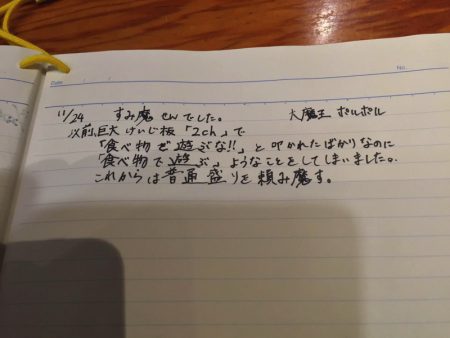 Date
No.
11/24 すみ魔せんでした。 大魔王 ポルポル
以前、巨大けいじ板「2ch」で
「食べ物で遊ぶな!!」と叩かれたばかりなのに
「食べ物で遊ぶ」ようなことをしてしまいました。
これからは普通盛りを頼み魔す。